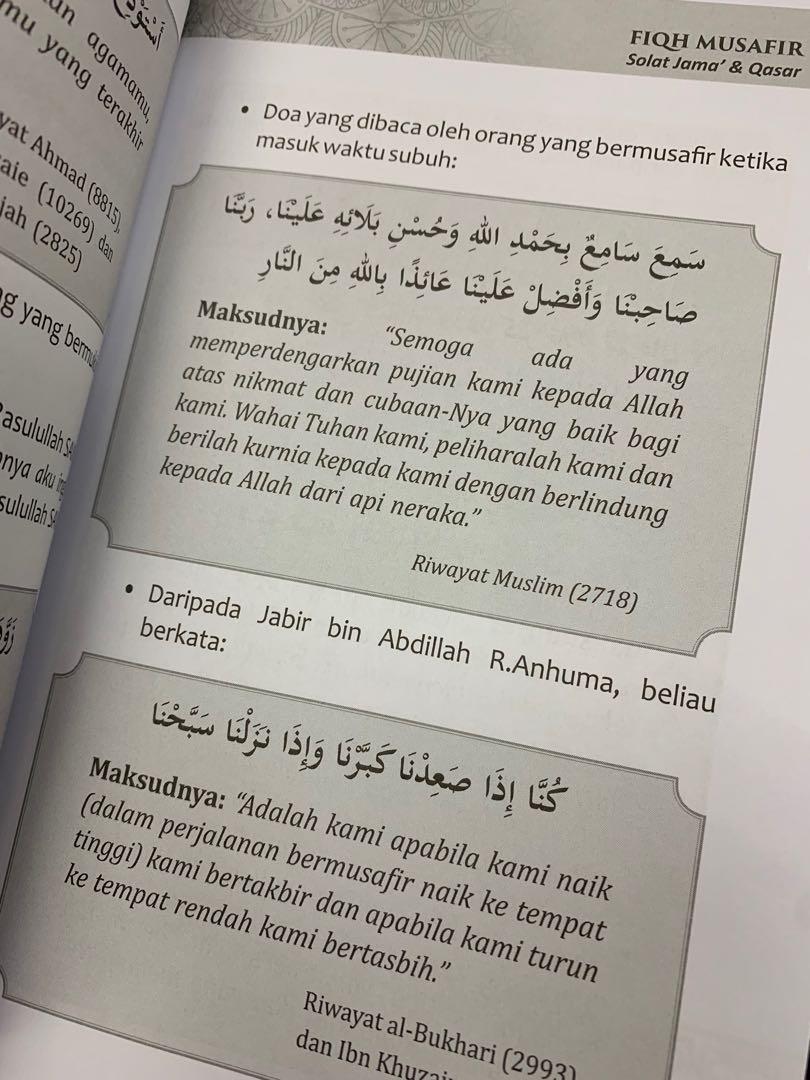 أَسْتَوْدِعُ
agamamu,
mu yang terakhir
yat Ahmad (8815),
aie (10269) dan
jah (2825)
g yang bermu
Rasulullah SA
nya aku
sulullah SA
FIQH MUSAFIR
Solat Jama’ & Qasar
• Doa yang dibaca oleh orang yang bermusafir ketika
masuk waktu subuh:
سَمِعَ سَامِعٌ بِحَمْدِ اللهِ وَحُسْنِ بَلَائِهِ عَلَيْنَا، رَبَّنَا
صَاحِبْنَا وَأَفْضِلْ عَلَيْنَا عَائِذًا بِاللهِ مِنَ النَّارِ
Maksudnya: “Semoga ada yang
memperdengarkan pujian kami kepada Allah
atas nikmat dan cubaan-Nya yang baik bagi
kami. Wahai Tuhan kami, peliharalah kami dan
berilah kurnia kepada kami dengan berlindung
kepada Allah dari api neraka.”
Riwayat Muslim (2718)
• Daripada Jabir bin Abdillah R.Anhuma, beliau
berkata:
كُنَّا إِذَا صَعِدْنَا كَبَّرْنَا وَإِذَا نَزَلْنَا سَبَّحْنَا
Maksudnya: “Adalah kami apabila kami naik
(dalam perjalanan bermusafir naik ke tempat
tinggi) kami bertakbir dan apabila kami turun
ke tempat rendah kami bertasbih.”
Riwayat al-Bukhari (2993)
dan Ibn Khuzai